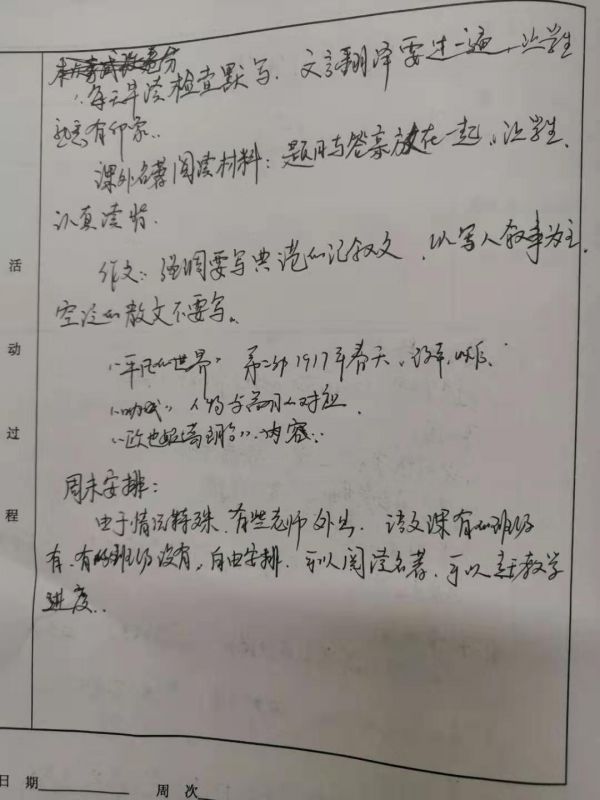 每天早读检查默写.文言翻译要过一遍,让学生
熟悉有印象.
课外名著阅读材料:题目与答案放在一起,让学生
认真读背.
作文:强调要写典范的记叙文,以写人叙事为主,
空泛的散文不要写.
"平凡的世界" 第二部1917年春天、
"呐喊" 人物与
"欧也妮葛朗台"内容.
周末安排:
由于情况特殊.有些老师外出.语文课有的班级
有.有的班级没有,自由安排.可以阅读名著,可以赶教学
进度..
活动过程
日 期 周 次